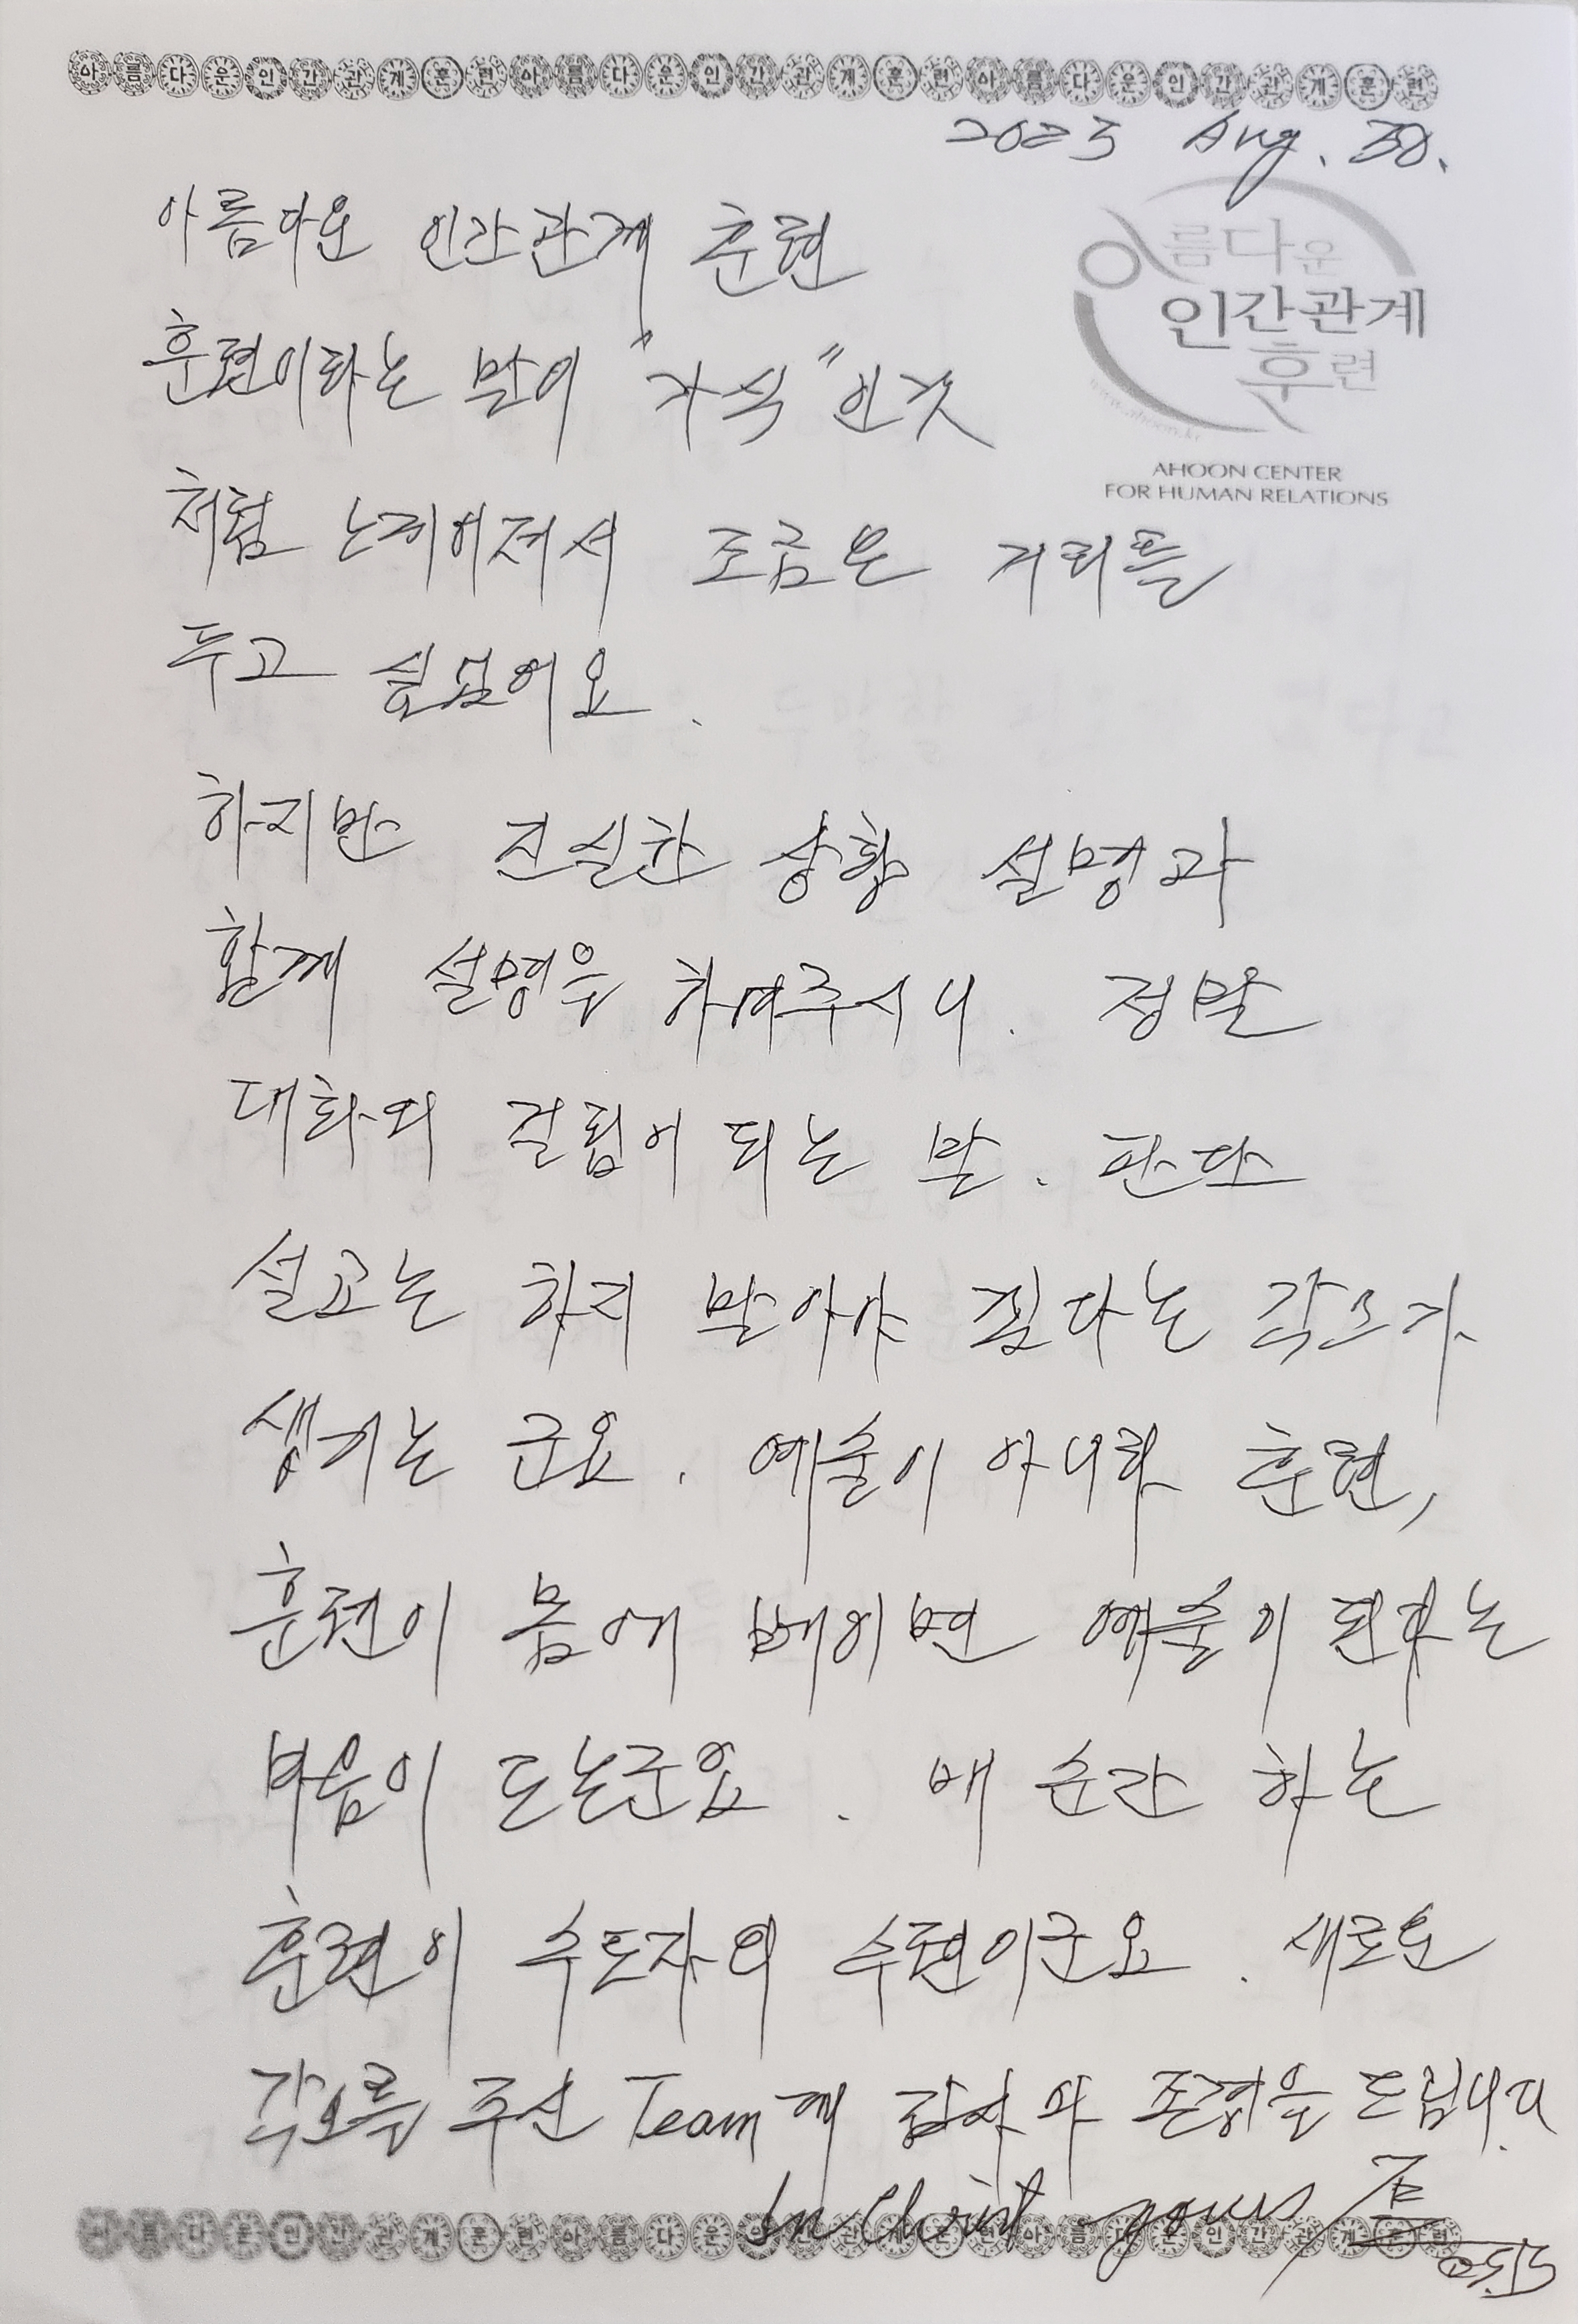 아름다운인간관계훈련아름다운인간관계훈련아름다운인간관계훈련
2023 Aug. 30.
아름다운 인간관계 훈련
아름다운
인간관계
훈련
www.ahoon.kr
AHOON CENTER
FOR HUMAN RELATIONS
훈련이라는 말이 "가식"인것
처럼 느끼어져서 조금은 거리를
두고 싶었어요.
하지만 진실한 상황 설명과
함께 설명을 하여주시니. 정말
대화의 걸림이 되는 말. 판단
설교는 하지 말아야 겠다는 각오가
생기는 군요. 예술이 아니라 훈련,
훈련이 몸에 베이면 예술이 된다는
마음이 드는군요. 매 순간 하는
훈련이 수도자의 수련이군요. 새로운
각오를 주신 Team께 감사와 존경을 드립니다.
In Christ yours,
아름다운인간관계훈련아름다운인간관계훈련아름다운인간관계훈련